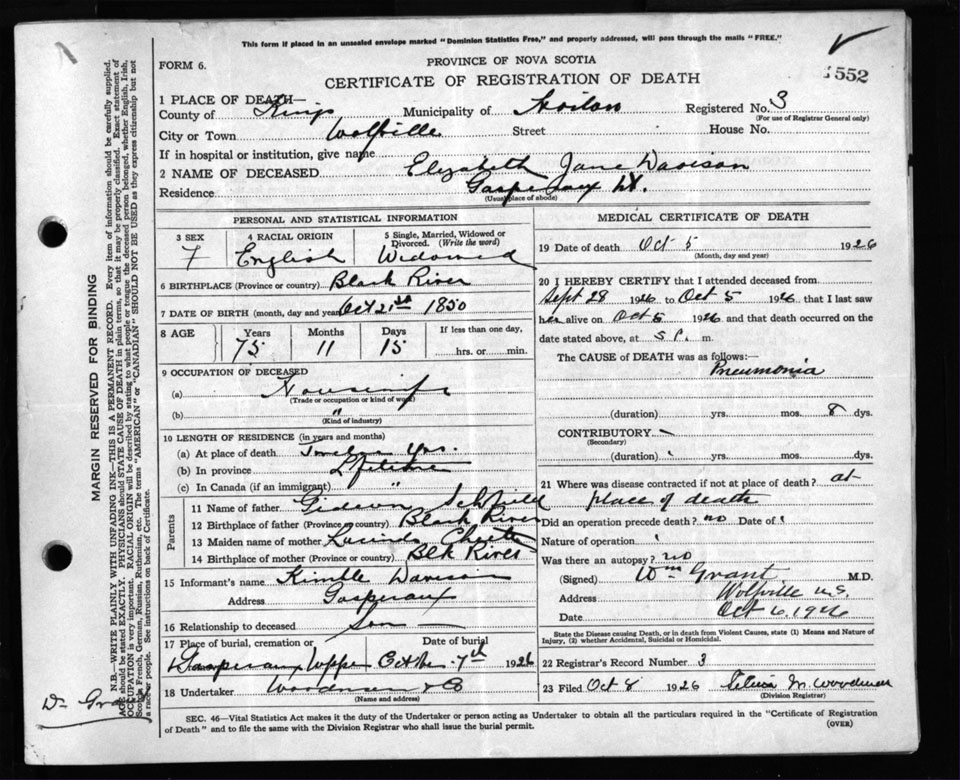 This form if placed in an unsealed envelope marked "Dominion Statistics Free," and properly addressed, will pass through the mails "FREE."
FORM 6.
PROVINCE OF NOVA SCOTIA
CERTIFICATE OF REGISTRATION OF DEATH
552
1 PLACE OF DEATH—
County of Kings Municipality of Horton Registered No. 3
(For use of Registrar General only)
City or Town Wolfville Street House No.
If in hospital or institution, give name
2 NAME OF DECEASED Elizabeth Jane Davison
Residence Gaspereaux
(Usual place of abode)
PERSONAL AND STATISTICAL INFORMATION
3 SEX 4 RACIAL ORIGIN 5 Single, Married, Widowed or Divorced. (Write the word)
F English Widowed
6 BIRTHPLACE (Province or country) Black River
7 DATE OF BIRTH (month, day and year) Oct 21st 1850
8 AGE Years Months Days If less than one day,
75 11 15 hrs. or min.
9 OCCUPATION OF DECEASED
(a) Housewife
(Trade or occupation or kind of work)
(b) "
(Kind of industry)
10 LENGTH OF RESIDENCE (in years and months)
(a) At place of death Twelve Yrs.
(b) In province Lifetime
(c) In Canada (if an immigrant) "
Parents
11 Name of father Gideon Schofield
12 Birthplace of father (Province or country) Black River
13 Maiden name of mother Lucinda
14 Birthplace of mother (Province or country) Blk River
15 Informant's name Kimble Davison
Address Gaspereaux
16 Relationship to deceased Son
17 Place of burial, cremation or Date of burial
Gaspereaux 7th 1926
18 Undertaker Woodman & Co
(Name and address)
MEDICAL CERTIFICATE OF DEATH
19 Date of death Oct 5 1926
(Month, day and year)
20 I HEREBY CERTIFY that I attended deceased from
Sept 28 1926 to Oct 5 1926 that I last saw
her alive on Oct 5 1926 and that death occurred on the
date stated above, at 5 P. m.
The CAUSE of DEATH was as follows:
Pneumonia
(duration) yrs. mos. 8 dys.
CONTRIBUTORY
(Secondary)
(duration) yrs. mos. dys.
21 Where was disease contracted if not at place of death? at
place of death
Did an operation precede death? no Date of
Nature of operation
Was there an autopsy? no
(Signed) Wm Grant M.D.
Address Wolfville N.S.
Date Oct 6, 1926
State the Disease causing Death, or in death from Violent Causes, state (1) Means and Nature of Injury, (2) whether Accidental, Suicidal or Homicidal.
22 Registrar's Record Number 3
23 Filed Oct 8 1926 M. Woodman
(Division Registrar)
SEC. 46—Vital Statistics Act makes it the duty of the Undertaker or person acting as Undertaker to obtain all the particulars required in the "Certificate of Registration
of Death" and to file the same with the Division Registrar who shall issue the burial permit.
(OVER)
MARGIN RESERVED FOR BINDING
N.B.—WRITE PLAINLY WITH UNFADING INK—THIS IS A PERMANENT RECORD. Every item of information should be carefully supplied.
AGE should be stated EXACTLY. PHYSICIANS should STATE CAUSE OF DEATH in plain terms, so that it may be properly classified. Exact statement of
OCCUPATION is very important. RACIAL ORIGIN will be described by stating to what people or tongue the deceased person belonged, whether English, Irish,
Scotch, French, German, Russian, Ruthenian, etc. The terms "AMERICAN" or "CANADIAN" SHOULD NOT BE USED as they express citizenship but not
a race or people. See instructions on back of Certificate.
Dr Grant